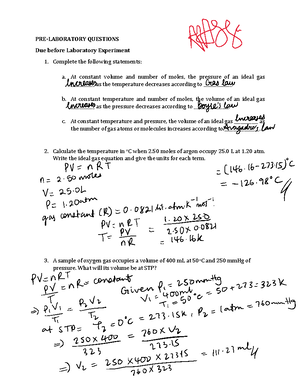 PRE-LABORATORY QUESTIONS
Due before Laboratory Experiment
1. Complete the following statements:
a. At constant volume and number of moles, the pressure of an ideal gas
Increases as the temperature decreases according to Gas law
b. At constant temperature and number of moles, the volume of an ideal gas
Increases as the pressure decreases according to Boyle's law
c. At constant temperature and pressure, the volume of an ideal gas Increases
the number of gas atoms or molecules increases according to Avogadro's law
2. Calculate the temperature in °C when 2.50 moles of argon occupy 25.0 L at 1.20 atm.
Write the ideal gas equation and give the units for each term.
PV = nRT
n = 2.50 moles
V = 25.0L
P = 1.20atm
gas constant (R) = 0.0821 lit.atm.K⁻¹mol⁻¹
PV = nRT
T = PV / nR = 1.20 x 250 / 2.50 x 0.0821
= 146.16k
= (146.16 - 273.15)°C
= -126.98°C
3. A sample of oxygen gas occupies a volume of 400 mL at 50°C and 250 mmHg of
pressure. What will its volume be at STP?
PV = nRT
PV / T = nR = constant
=> P₁V₁ / T₁ = P₂V₂ / T₂
Given P₁ = 250mmHg
V₁ = 400ml
T₁ = 50°C = 50+273 = 323K
at STP = T₂ = 0°C = 273.15K, P₂ = 1atm = 760mmHg
=> 250 x 400 / 323 = 760 x V₂ / 273.15
=> V₂ = 250 x 400 x 273.15 / 760 x 323 = 111.27ml